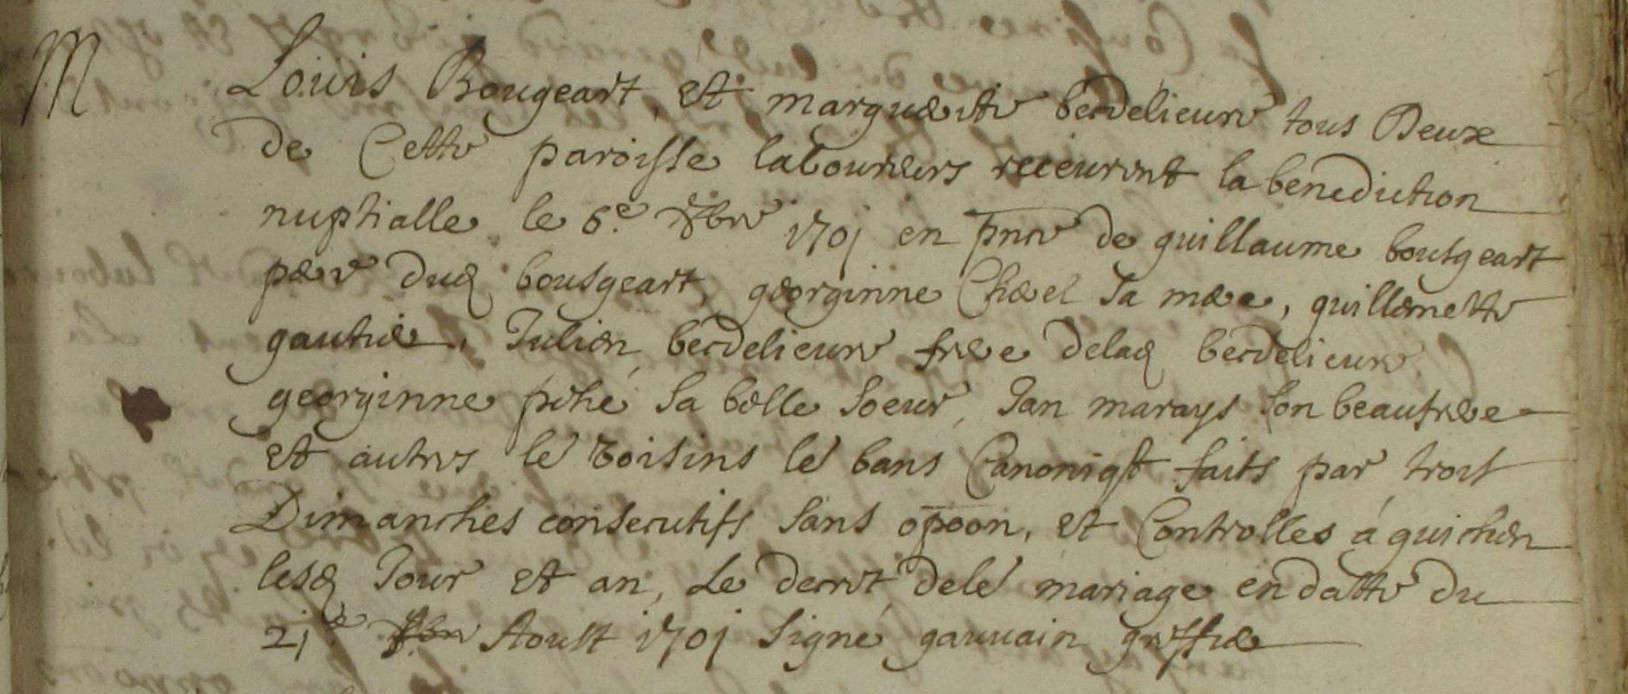 M Louis Bougeart, et margueritte becdelieure tous Deux
de Cette paroisse laboureurs receurent la benediction
nuptialle le 6e 1701 en pnce de guillaume bousgeart
pere dud bousgeart, georginne Chevel sa mere, guillemette
gautier, Julien becdelieure frere delad becdelieure
georginne piche sa belle soeur, Jan marays son beaufrere
et autres le voisins le bans Canoniqt faits par trois
Dimanches consecutifs sans opoon, et Controlles a guichen
lesd Jour et an, Le decret dele mariage en datte du
21e Aoust 1701 signé gauvain greffier